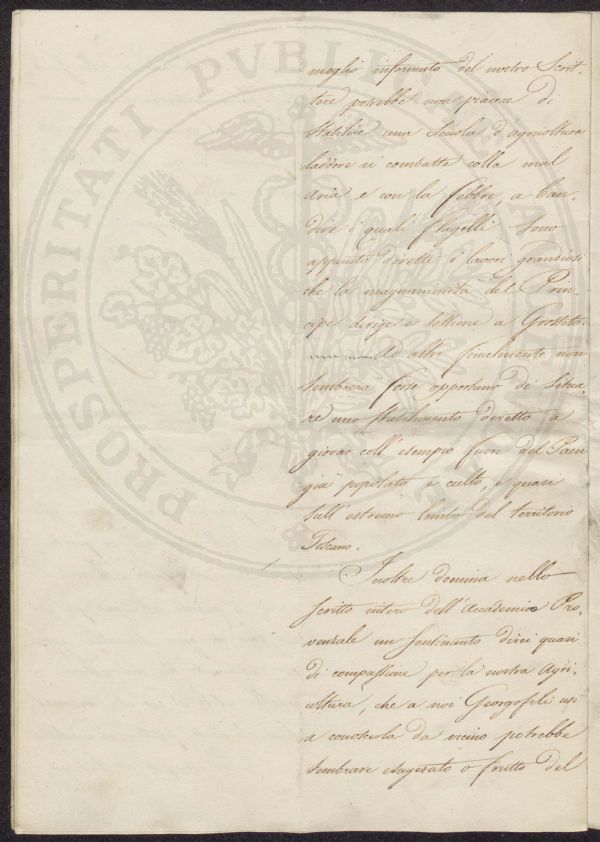 PROSPERITATI PVBLICAE A
meglio informato del nostro Scrit-
tore potrebbe non piacere di
stabilire una Scuola d'agricoltura
laddove si combatte colla mal
Aria e con la febbre, a ban-
dire i quali flagelli sono
appunto diretti i lavori grandiosi
che la magnanimità del Prin-
cipe dirige e sostiene a Grosseto.
Ad altri finalmente non
sembrerà forse opportuno di situa-
re uno stabilimento diretto a
giovar coll'esempio fuori del Paese
già popolato e culto, e quasi
sull'estremo lembo del territorio
Toscano.
Inoltre domina nello
scritto intero dell'Accademico Pro-
venzale un sentimento direi quasi
di compassione per la nostra Agri-
cultura, che a noi Georgofili usi
a conoscerla da vicino potrebbe
sembrare esagerato o frutto del